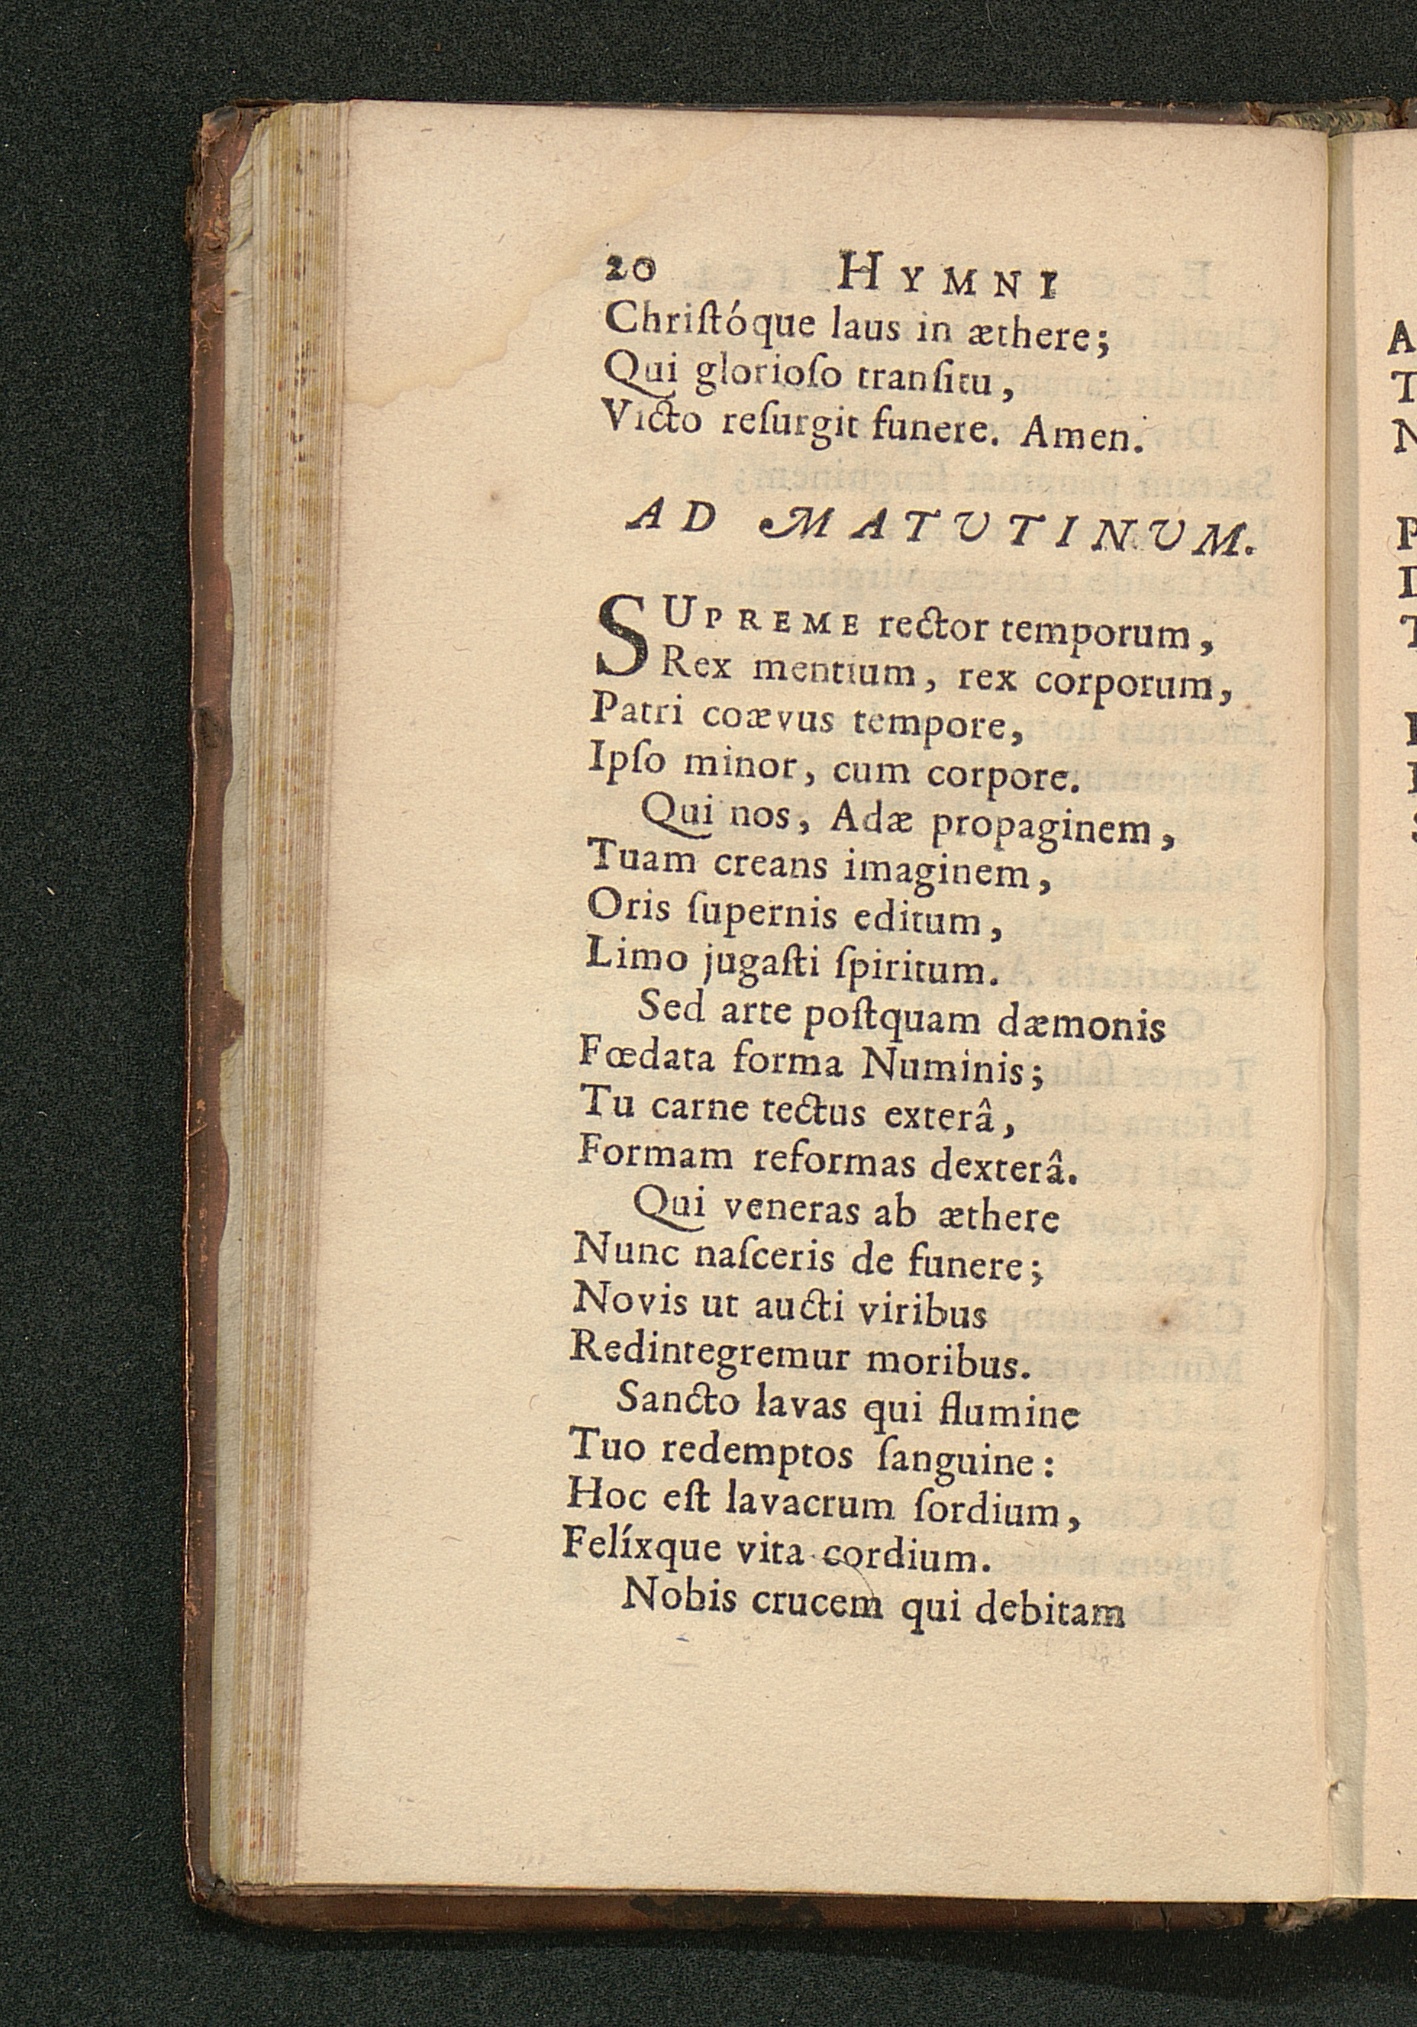 20 HYMNI
Chriſtóque laus in æthere;
Qui glorioſo tranſitu,
Victo reſurgit funere. Amen.
AD MATUTINUM.
SUPREME rector temporum,
Rex mentium, rex corporum,
Patri coævus tempore,
Ipſo minor, cum corpore.
Qui nos, Adæ propaginem,
Tuam creans imaginem,
Oris ſupernis editum,
Limo jugaſti ſpiritum.
Sed arte poſtquam dæmonis
Fœdata forma Numinis;
Tu carne tectus exterâ,
Formam reformas dexterâ.
Qui veneras ab æthere
Nunc naſceris de funere;
Novis ut aucti viribus
Redintegremur moribus.
Sancto lavas qui flumine
Tuo redemptos ſanguine:
Hoc eſt lavacrum ſordium,
Felíxque vita cordium.
Nobis crucem qui debitam